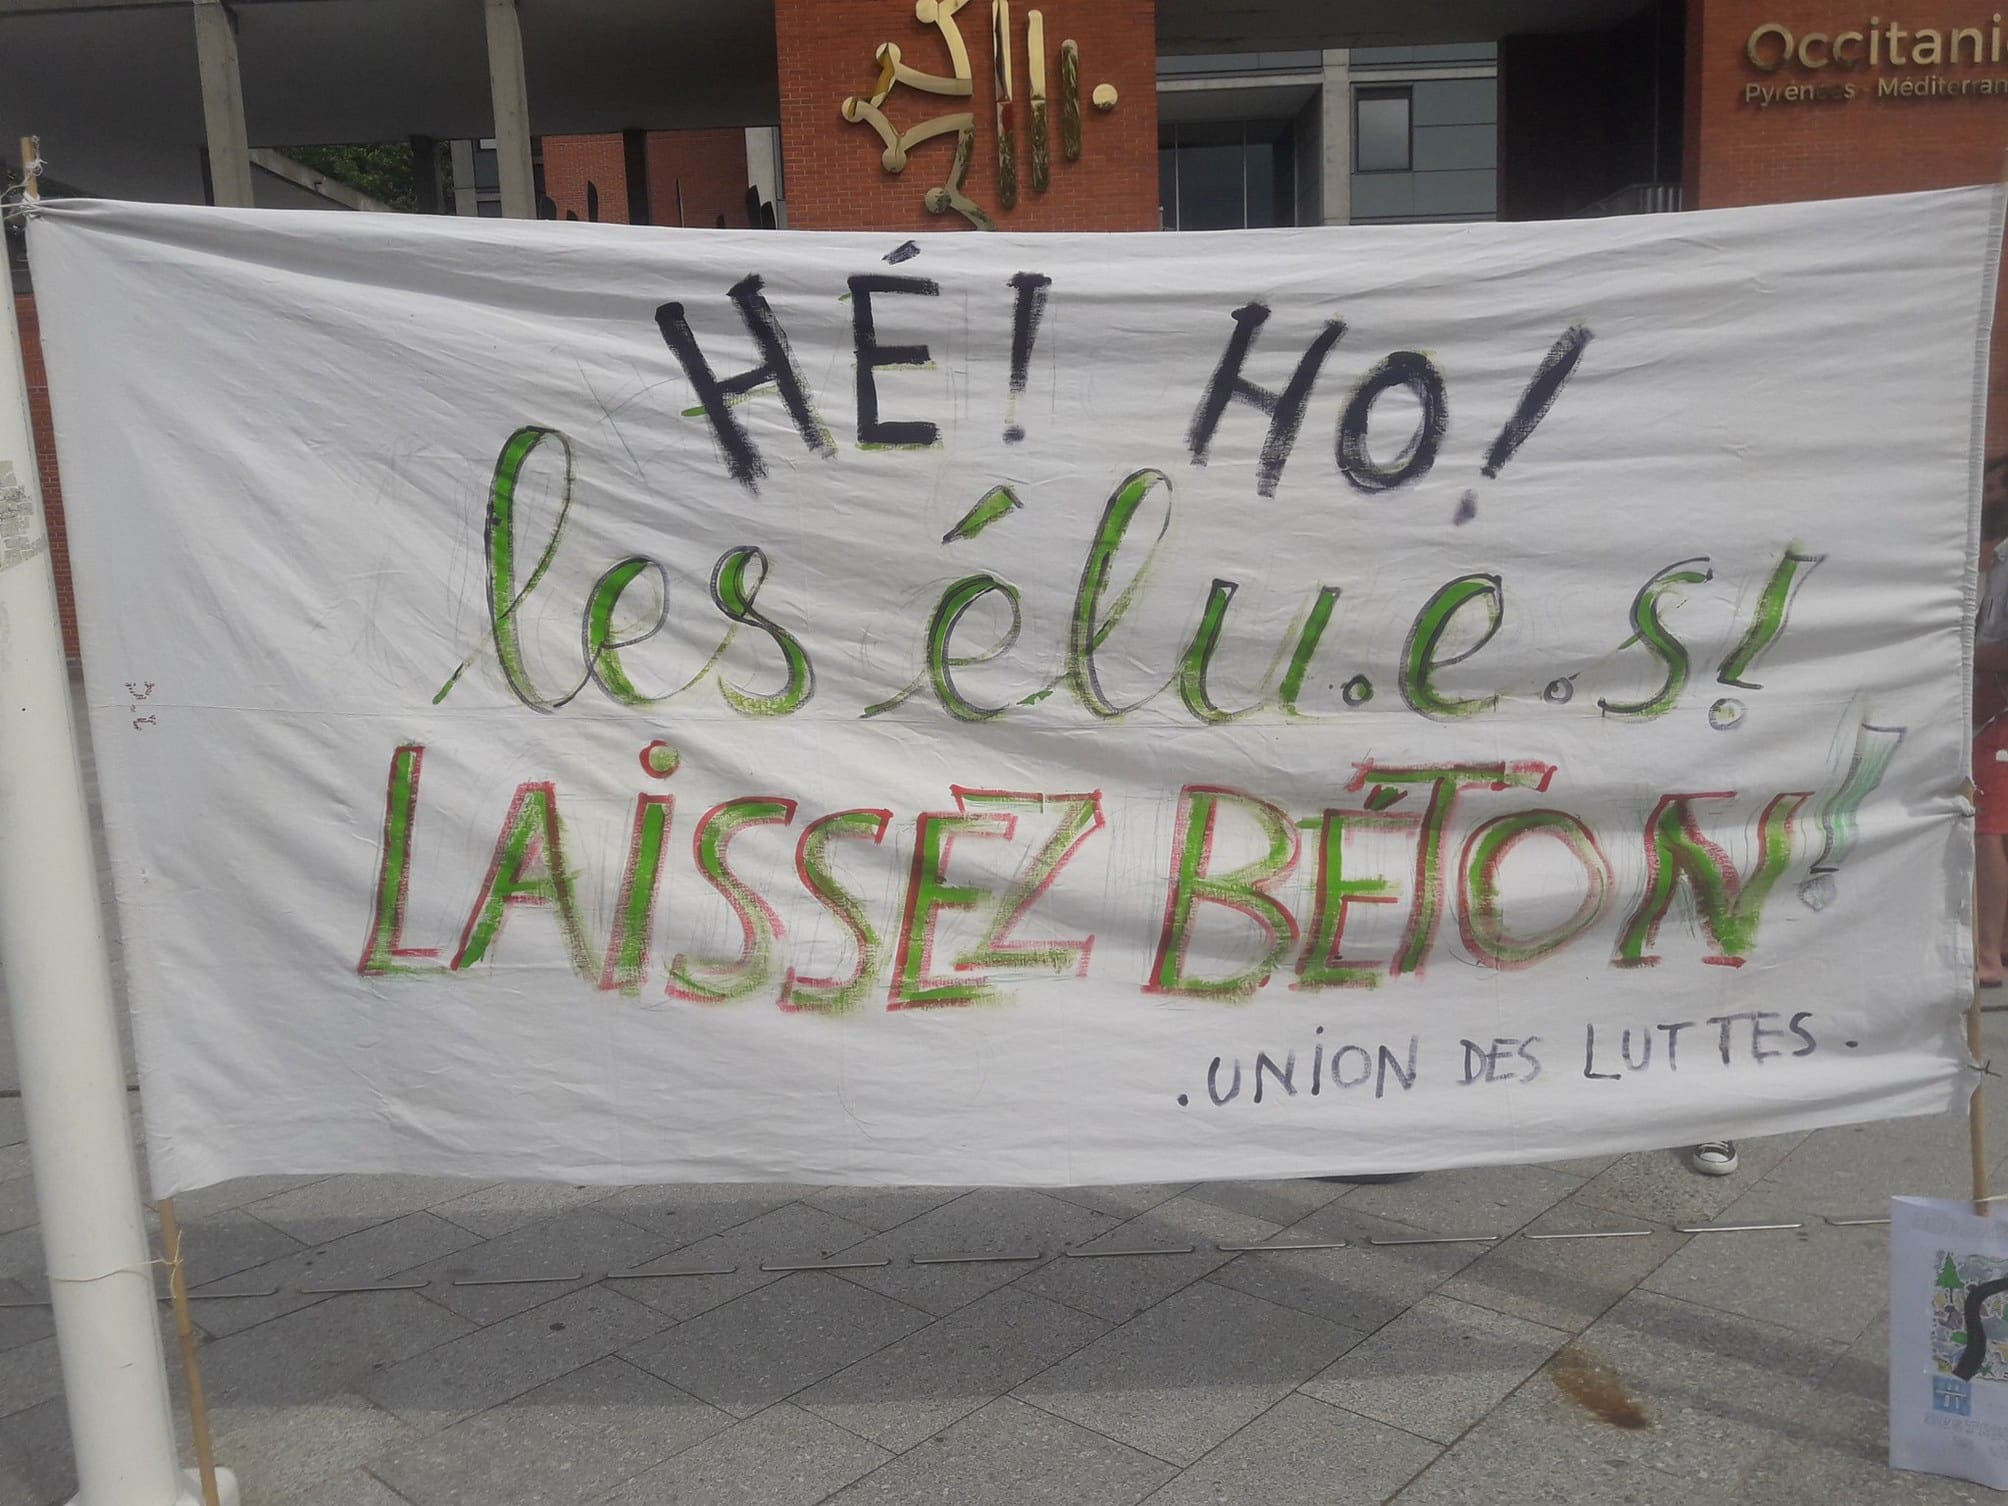 Occitani
Pyrénées - Méditerran
HÉ! HO!
les élu.e.s!
LAISSEZ BÉTON!
. UNION DES LUTTES .